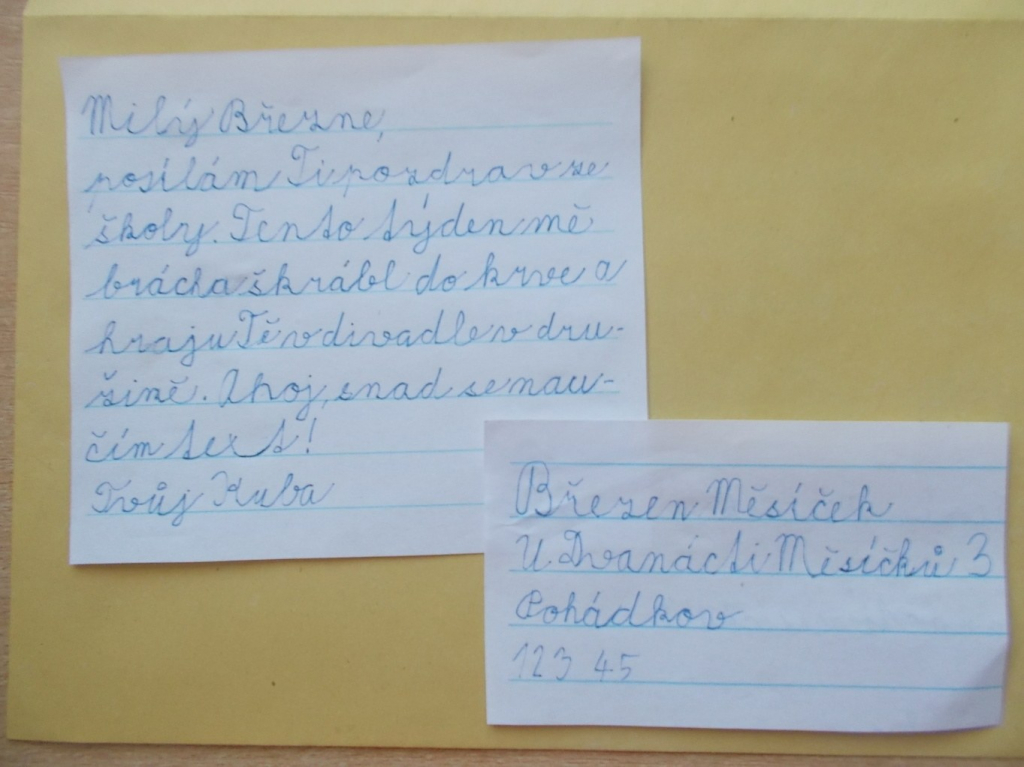 Milý Březne,
posílám Ti pozdrav ze
školy. Tento týden mě
brácha škrábl do krve a
hraju Tě v divadle v dru-
žině. Ahoj, snad se nau-
čím text!
Tvůj Kuba
Březen Měsíček
U Dvanácti Měsíčků 3
Pohádkov
123 45